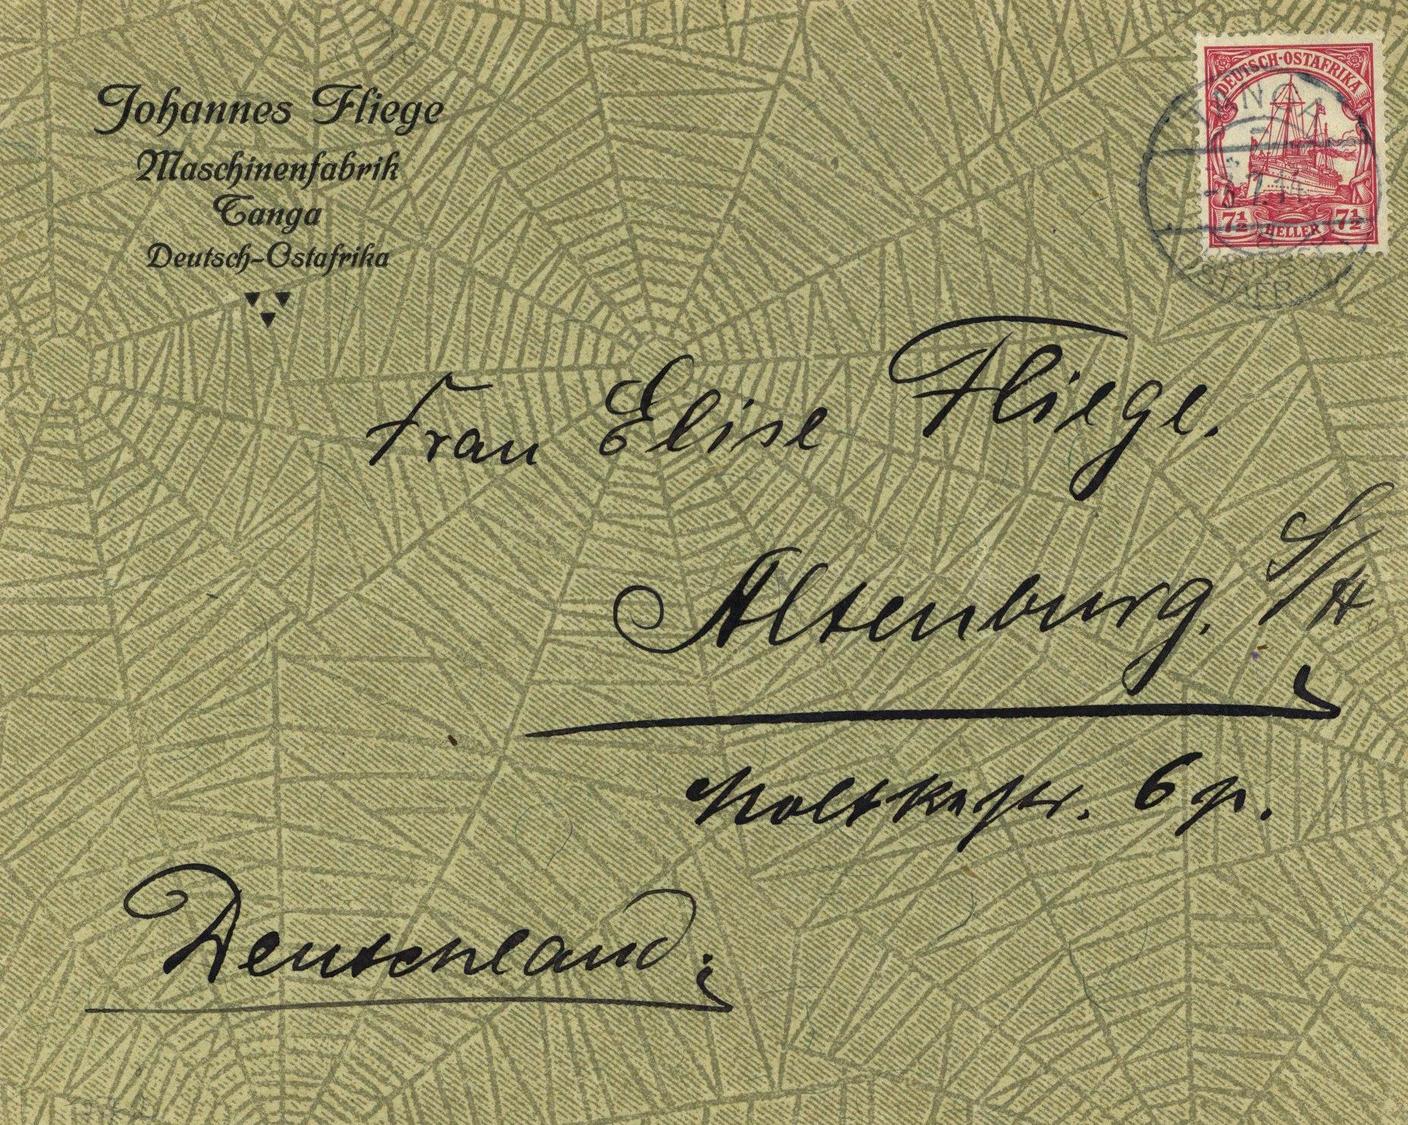 Johannes Fliege
Maschinenfabrik
Tanga
Deutsch-Ostafrika
DEUTSCH-OSTAFRIKA
7½ HELLER 7½
TANGA
OSTAFR
Frau Elise Fliege.
Altenburg. S/A
Moltkestr. 6
Deutschland.